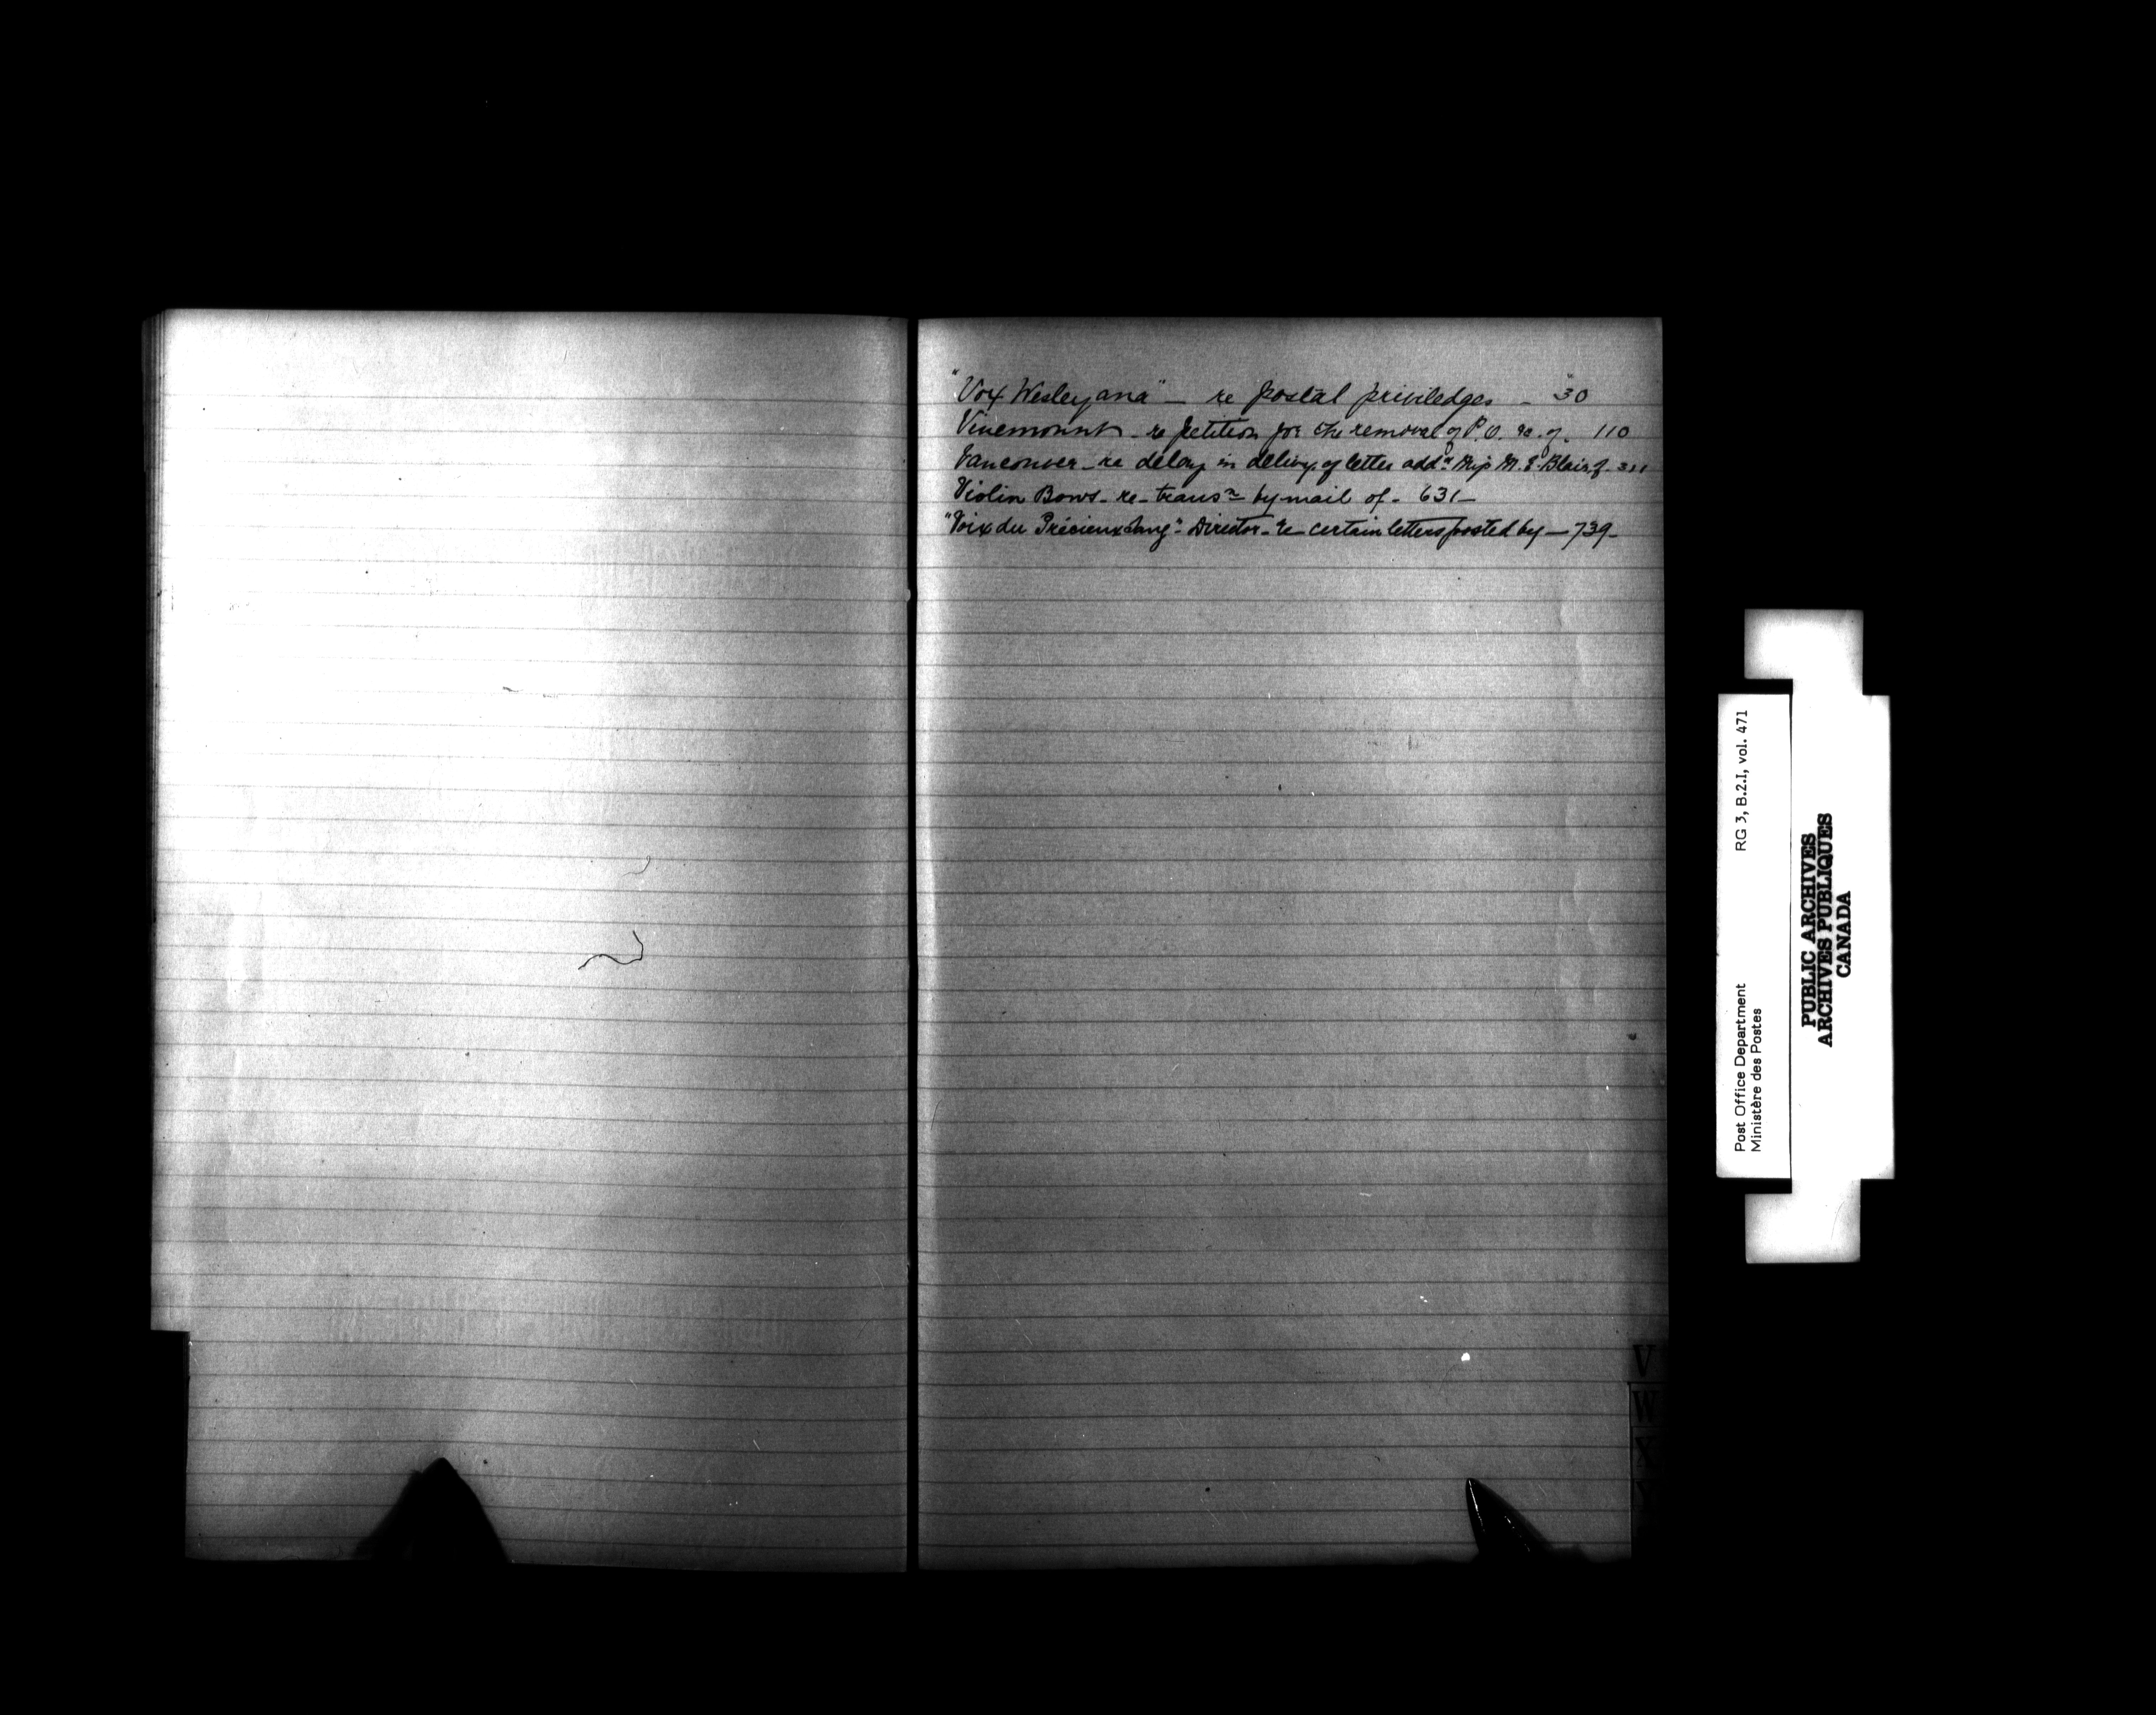 "Vox Wesleyana" — re postal priviledges — 30
Vinemount — re petition for the removal of P.O. &c. of. 110
Vancouver — re delay in delivy. of letter addd. Miss M. E. Blair of 311
Violin Bows — re — transn by mail of — 631 —
"Voix du Précieux Sang" — Director — re — certain letters posted by — 739 —
V
W
X
Y
Post Office Department
Ministère des Postes
RG 3, B.2.I, vol. 471
PUBLIC ARCHIVES
ARCHIVES PUBLIQUES
CANADA